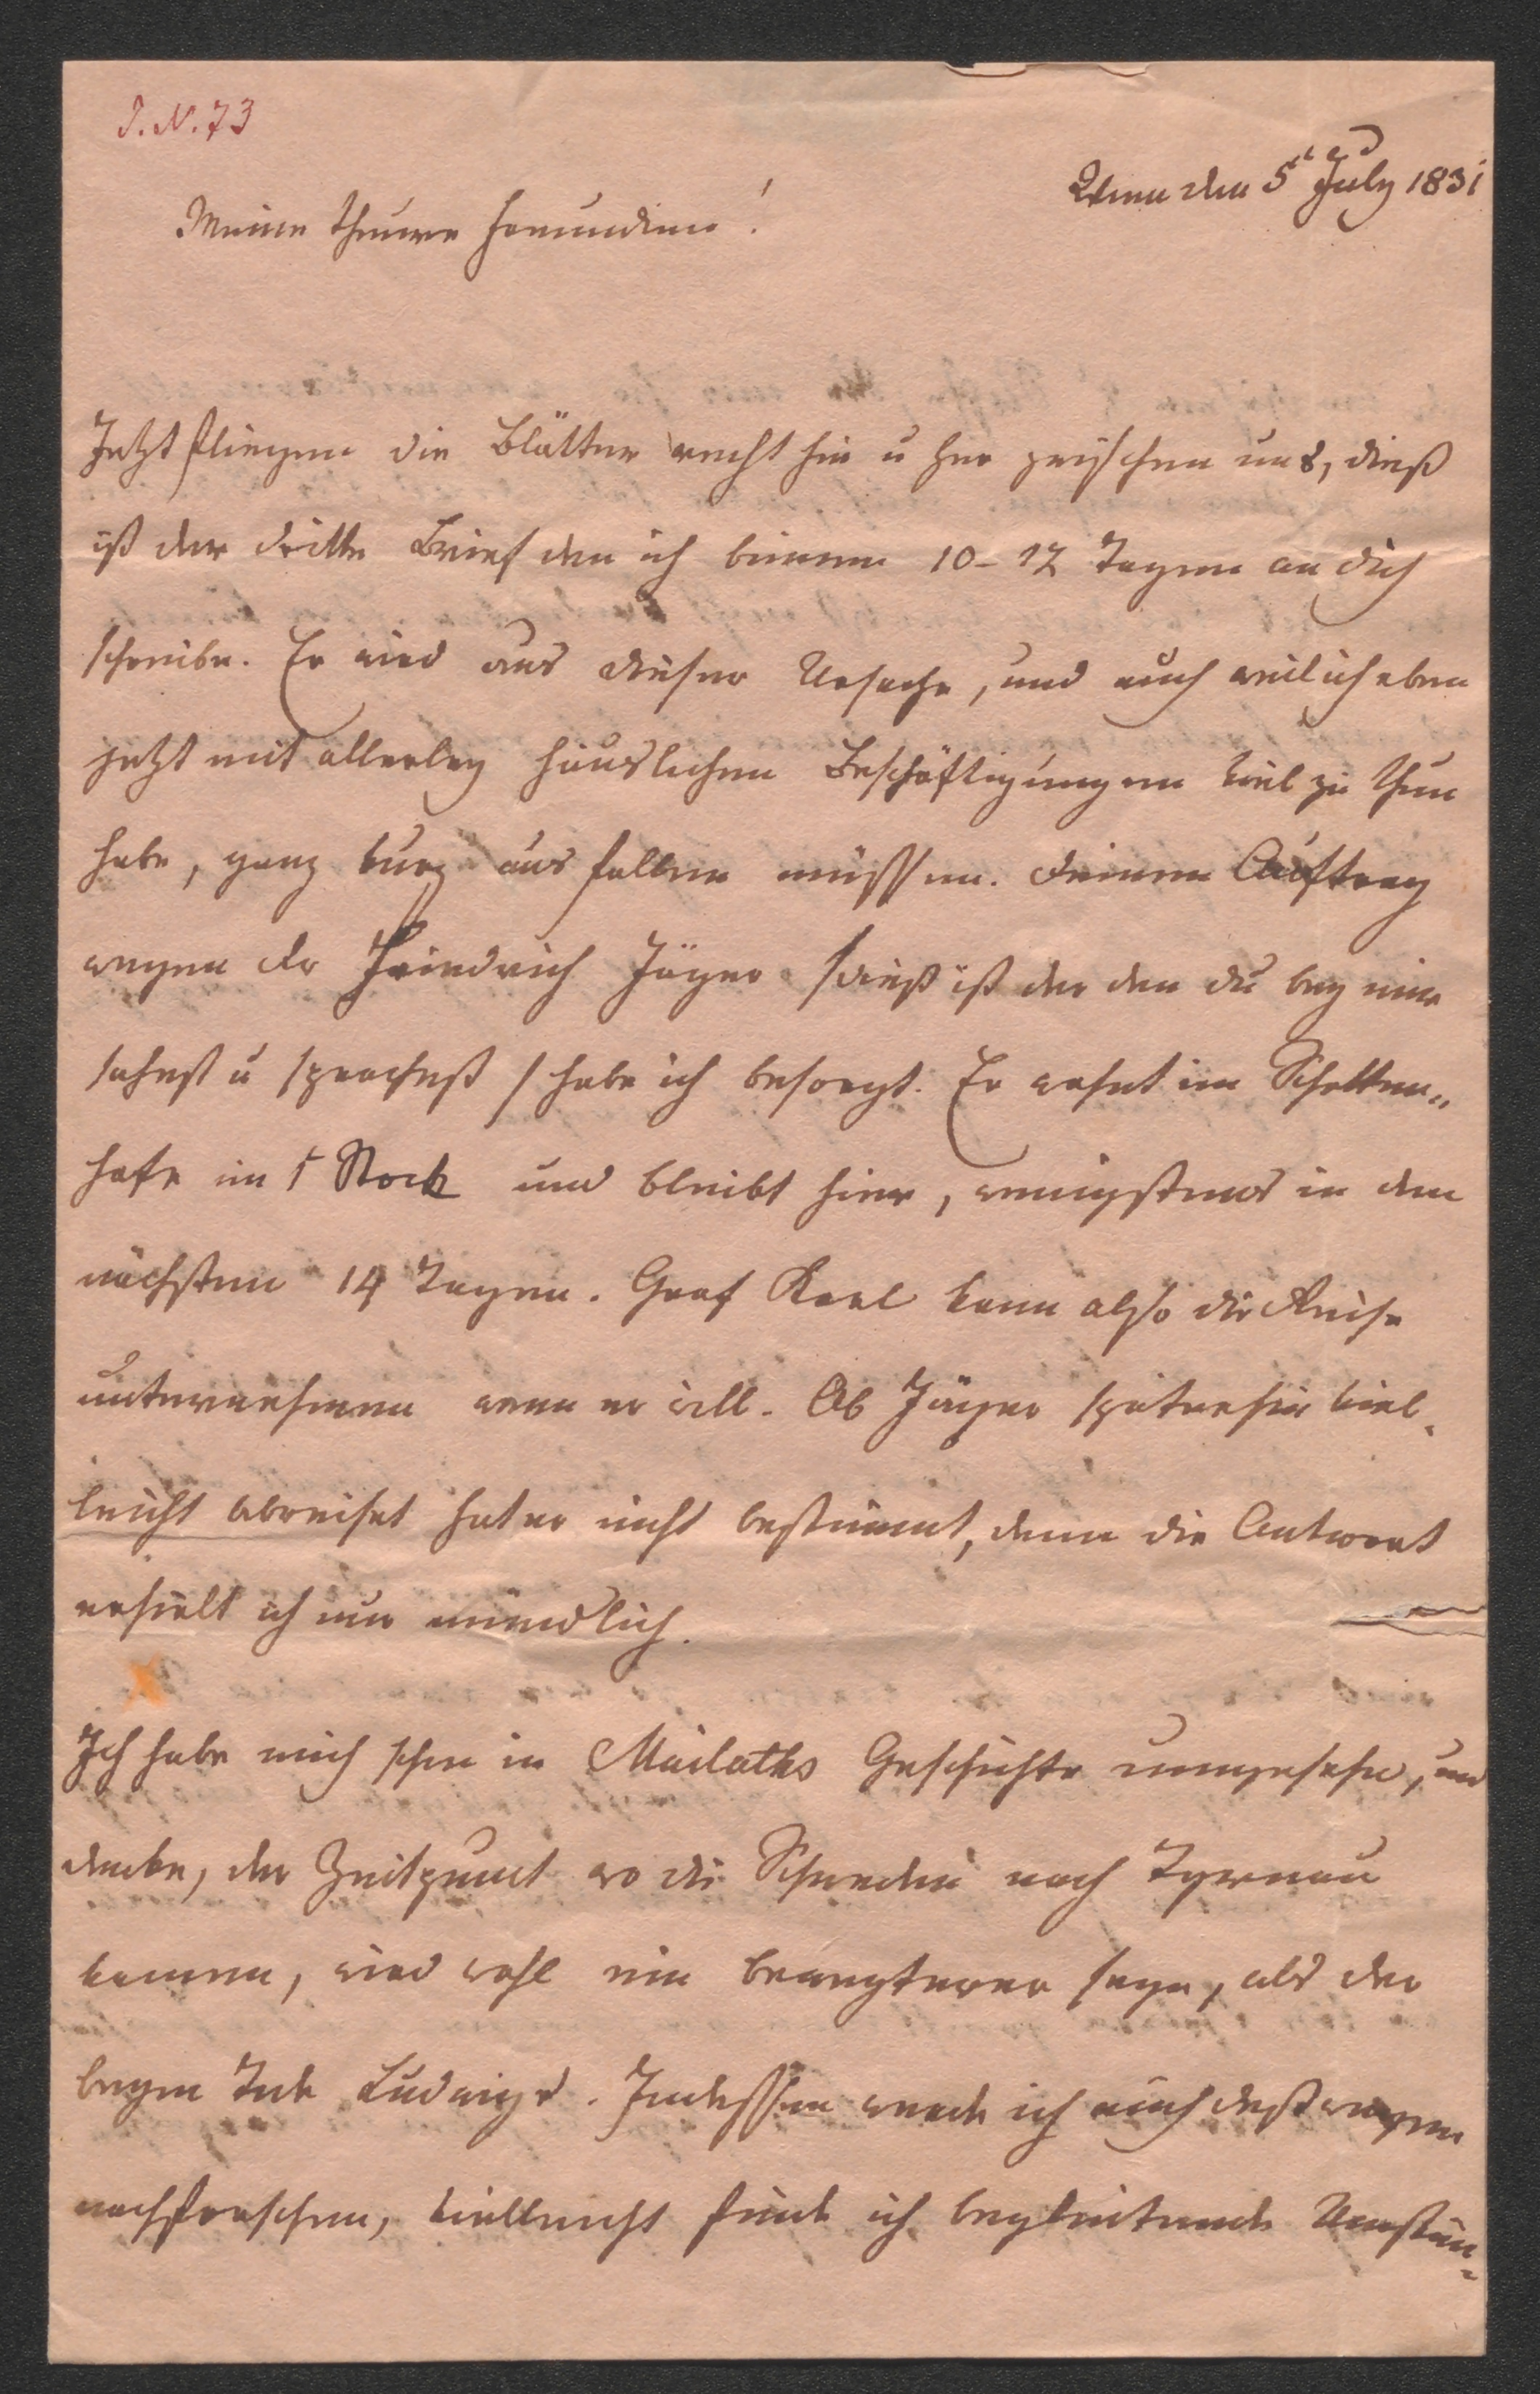 J. N. 73
Wien den 5t July 1831
Meine theure Freundinn!
Jetzt fliegen die Blätter recht hin u her zwischen uns, dieß
ist der dritte Brief den ich binnen 10-12 Tagen an dich
schreibe. Er wird aus dieser Ursache, und auch weil ich eben
jetzt mit allerley häuslichen Beschäftigungen viel zu thun
habe, ganz kurz aus fallen müssen. Deinen Auftrag
wegen Dr Friedrich Jäger /dieß ist der den du bey mir
sahest u sprachest/ habe ich besorgt. Er wohnt im Schotten„
hofe im 1 Stock und bleibt hier, wenigstens in den
nächsten 14 Tagen. Graf Karl kann also die Reise
unternehmen wenn er will. Ob Jäger späterhin viel„
leicht abreiset hat er nicht bestimmt, denn die Antwort
erhielt ich nur mündlich.
Ich habe mich schon in Mailaths Geschichte umgesehn, und
denke, der Zeitpunct wo die Schweden nach Tyrnau
kamen, wird wohl ein bewegterer seyn, als der
beym Tode Ludwigs. Indessen werde ich auch deßwegen
nachforschen, vielleicht finde ich begleitende Umstän-